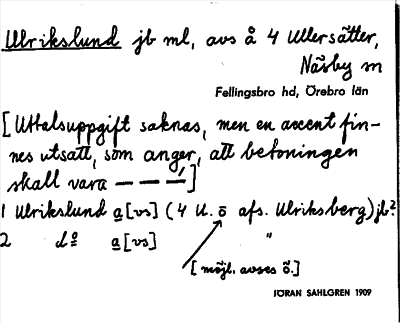 Ulrikslund jb ml, avs å 4 Ullersätter,
Näsby sn
Fellingsbro hd, Örebro län
[Uttalsuppgift saknas, men en accent fin-
nes utsatt, som anger, att betoningen
skall vara — — —́]
1 Ulrikslund a[vs] (4 U. ö afs. Ulriksberg) jb?
2 do a[vs] "
[möjl. avses ö.]
JÖRAN SAHLGREN 1909